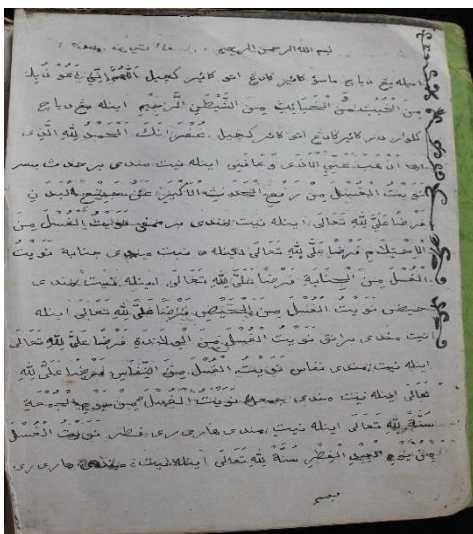 بسم الله الرحمن الرحيم
ايله يغ دباچ ماسوق كائير كادڠ اتو كائير كچيل اَللّٰهُمَّ اِنِّيْ اَعُوْذُبِكَ
مِنَ الْخُبُثِ مِنَ الْخَبَائِثِ مِنَ الشَّيْطٰنِ الرَّجِيْمِ ايله يغ دباچ
كلوار در كائير كادڠ اتو كائير كچيل غُفْرَانَكَ اَلْحَمْدُ لِلّٰهِ الَّذِى
اَذْهَبَ عَنِّيْ الْاَذَى وَعَافَنِى ايله نيت مندى در حدث بسر
نَوَيْتُ الْغُسْلَ مِنْ رَفْعِ الْحَدَثِ الْاَكْبَرِ عَنْ جَمِيْعِ الْبَدَنِ
فَرْضًا عَلَيَّ لِلّٰهِ تَعَالَى ايله نيت مندى نَوَيْتُ الْغُسْلَ مِنَ
الْاِحْتِلَامِ فَرْضًا عَلَيَّ لِلّٰهِ تَعَالَى ايله نيت مندى جنابة نَوَيْتُ
الْغُسْلَ مِنَ الْجِنَابَةِ فَرْضًا عَلَيَّ لِلّٰهِ تَعَالَى ايله نيت مندى
حيض نَوَيْتُ الْغُسْلَ مِنَ الْحَيْضِ فَرْضًا عَلَيَّ لِلّٰهِ تَعَالَى ايله
نيت مندى برانق نَوَيْتُ الْغُسْلَ مِنَ الْوِلَادَةِ فَرْضًا عَلَيَّ لِلّٰهِ تَعَالَى
ايله نيت مندى نفاس نَوَيْتُ الْغُسْلَ مِنَ النِّفَاسِ فَرْضًا عَلَيَّ لِلّٰهِ
تَعَالَى ايله نيت مندى جمعة نَوَيْتُ الْغُسْلَ مِنْ يَوْمِ الْجُمْعَةِ
سُنَّةً لِلّٰهِ تَعَالَى ايله نيت مندى هارى رى فطر نَوَيْتُ الْغُسْلَ
مِنْ يَوْمِ الْعِيْدِ الْفِطْرِ سُنَّةً لِلّٰهِ تَعَالَى ايله نيت مندى هارى رى